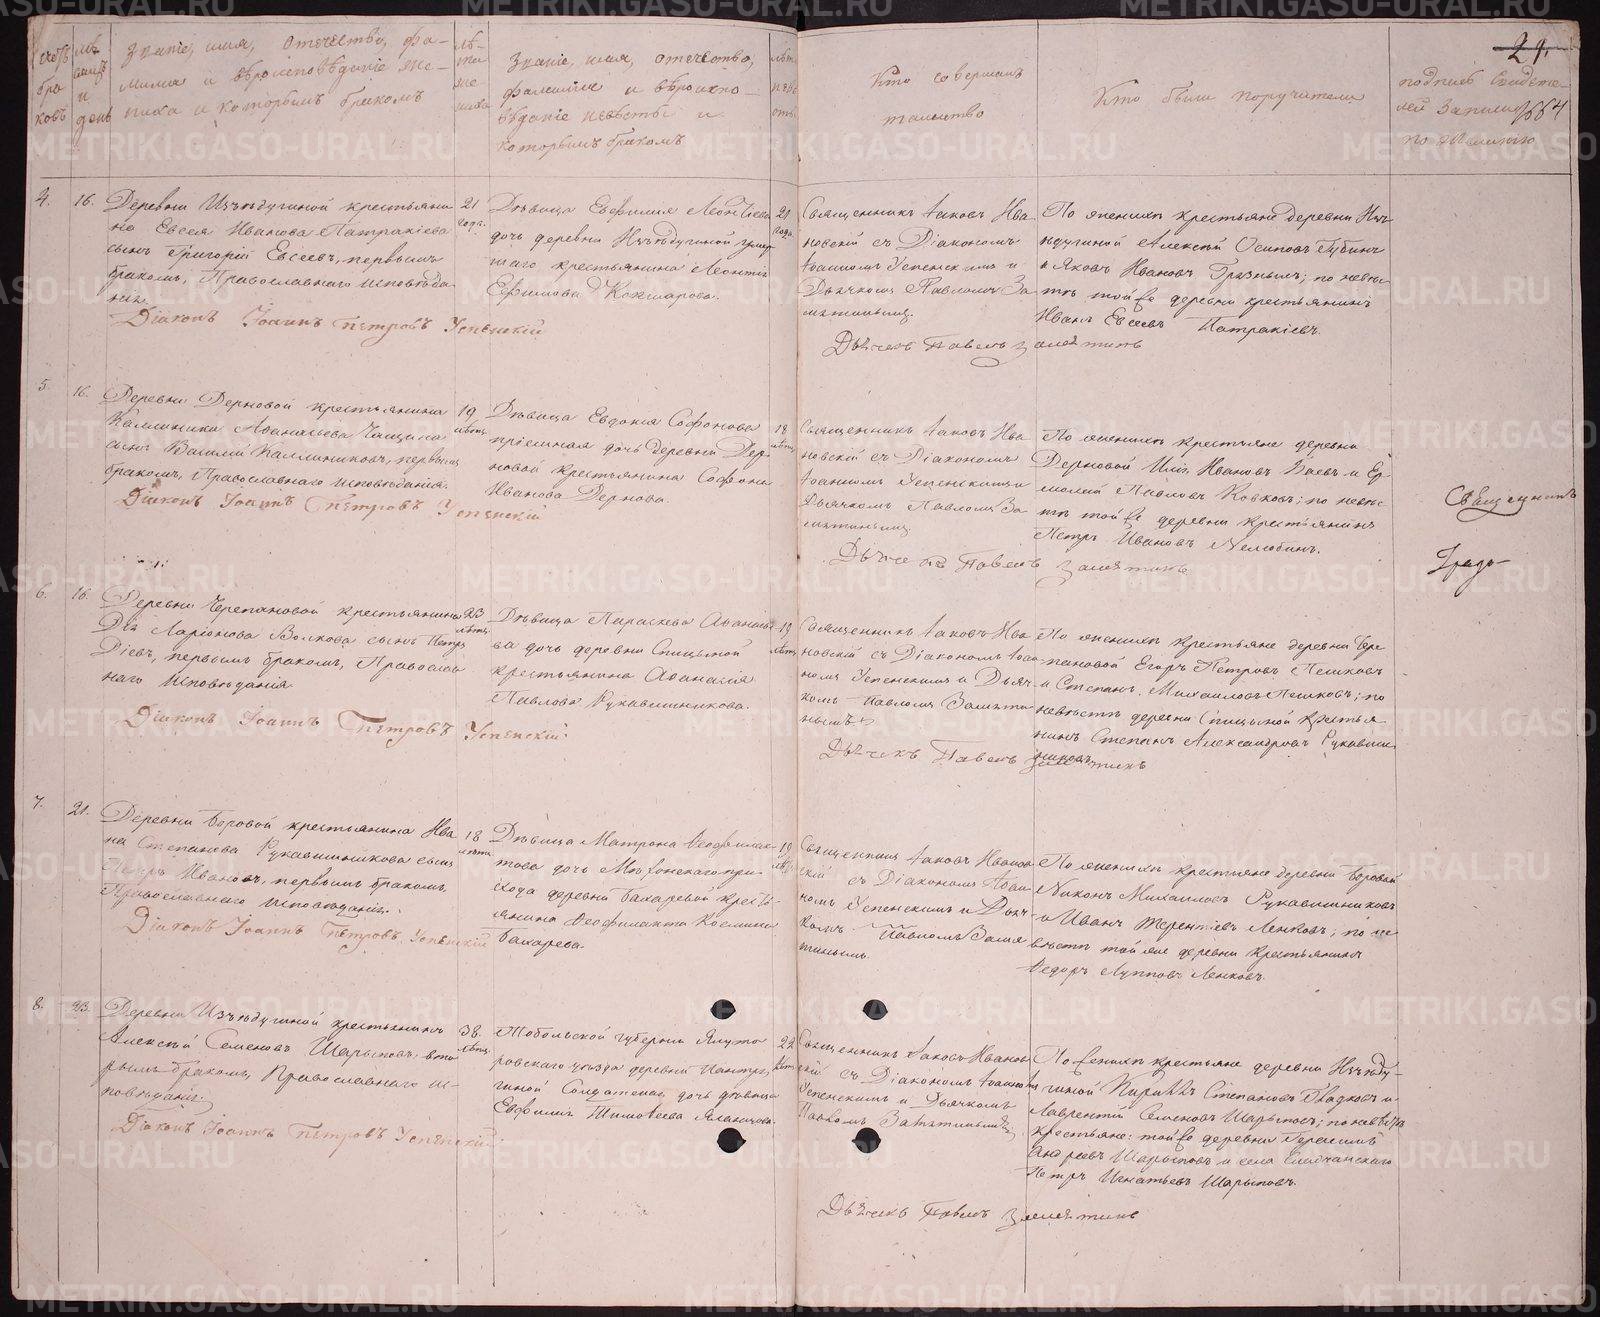 29.
664
Счетъ браковъ
Мѣсяцъ и день
Званіе, имя, отечество, фа-
милія и вѣроисповѣданіе же-
ниха и которымъ бракомъ
Лѣта жениха
Званіе, имя, отечество,
фамилія и вѣроиспо-
вѣданіе невѣсты и
которымъ бракомъ
Лѣта невѣсты
Кто совершалъ
таинство
Кто были поручители
подпись свидѣте-
лей записи
по желанію
4.
16.
Деревни Изъѣдугиной крестьяни-
на Евсея Иванова Патракіева
сынъ Григорій Евсеевъ, первымъ
бракомъ, Православнаго исповѣда-
нія.
Діаконъ Іоаннъ Петровъ Успенскій
21
года.
Дѣвица Евфимія Леонтіева
дочь деревни Изъѣдугиной умер-
шаго крестьянина Леонтія
Ефимова Кокшарова.
21
года.
Священникъ Іаковъ Ива-
новскій съ Діакономъ
Іоанномъ Успенскимъ и
Дьячкомъ Павломъ За-
мятинымъ.
Дьячекъ Павелъ Замятинъ
По женихѣ крестьяне деревни Изъ-
ѣдугиной Алексѣй Осиповъ Губинъ
и Яковъ Ивановъ Грязныхъ; по невѣс-
тѣ той же деревни крестьянинъ
Иванъ Евсеевъ Патракіевъ.
5.
16.
Деревни Дерновой крестьянина
Каллиника Аванасьева Чащина
сынъ Василій Каллиниковъ, первымъ
бракомъ, Православнаго исповѣданія.
Діаконъ Іоаннъ Петровъ Успенскій
19
лѣтъ.
Дѣвица Евдокія Софонова
пріемная дочь деревни Дер-
новой крестьянина Софона
Иванова Дернова.
18
лѣтъ
Священникъ Іаковъ Ива-
новскій съ Діакономъ
Іоанномъ Успенскимъ и
Дьячкомъ Павломъ За-
мятинымъ.
Дьячекъ Павелъ Замятинъ
По женихѣ крестьяне деревни
Дерновой Илія Ивановъ Заевъ и Ер-
молай Павловъ Ковковъ; по невѣс-
тѣ той же деревни крестьянинъ
Петръ Ивановъ Нелюбинъ.
Священникъ
6.
16.
Деревни Черепановой крестьянина
Дія Ларіонова Волкова сынъ Петръ
Діевъ, первымъ бракомъ, Православ-
наго исповѣданія
Діаконъ Іоаннъ Петровъ Успенскій
23
лѣтъ.
Дѣвица Параскева Аѳанась-
ва дочь деревни Спицыной
крестьянина Аѳанасія
Павлова Рукавишникова.
19
лѣтъ
Священникъ Іаковъ Ива-
новскій съ Діакономъ Іоан-
номъ Успенскимъ и Дьяч-
комъ Павломъ Замяти-
нымъ
Дьячекъ Павелъ Замятинъ
По женихѣ крестьяне деревни Чере-
пановой Егоръ Петровъ Пешковъ
и Степанъ Михаиловъ Пешковъ; по
невѣстѣ деревни Спицыной крестья-
нинъ Степанъ Александровъ Рукавиш-
никовъ.
7.
21.
Деревни Боровой крестьянина Ива-
на Степанова Рукавишникова сынъ
Петръ Ивановъ, первымъ бракомъ,
Православнаго исповѣданія.
Діаконъ Іоаннъ Петровъ Успенскій
18
лѣтъ
Дѣвица Матрона Ѳеофилак-
това дочь при-
хода деревни Бахаревой кресть-
янина Ѳеофилакта Космина
Бахарева.
19
лѣтъ
Священникъ Іаковъ Иванов-
скій съ Діакономъ Іоан-
номъ Успенскимъ и Дьяч-
комъ Павломъ Замя-
тинымъ.
По женихѣ крестьяне деревни Боровой
Никонъ Михаиловъ Рукавишниковъ
и Иванъ Терентіевъ Ленковъ; по не-
вѣстѣ той же деревни крестьянинъ
Ѳедоръ Лупповъ Ленковъ.
8.
23.
Деревни Изъѣдугиной крестьянинъ
Алексѣй Семеновъ Шарыповъ, вто-
рымъ бракомъ, Православнаго ис-
повѣданія.
Діаконъ Іоаннъ Петровъ Успенскій
38.
лѣтъ.
Тобольской губерніи Ялуто-
ровскаго уѣзда деревни
Солдатская дочь дѣвица
Евфимія Тимоѳеева
22
лѣтъ
Священникъ Іаковъ Иванов-
скій съ Діакономъ Іоанномъ
Успенскимъ и Дьячкомъ
Павломъ Замятинымъ
Дьячекъ Павелъ Замятинъ
По женихѣ крестьяне деревни Изъѣду-
гиной Кириллъ Степановъ Гладковъ и
Лаврентій Семеновъ Шарыповъ; по невѣстѣ
крестьяне: той же деревни Герасимъ
Андреевъ Шарыповъ и села
Петръ Игнатьевъ Шарыповъ.
METRIKI.GASO-URAL.RU